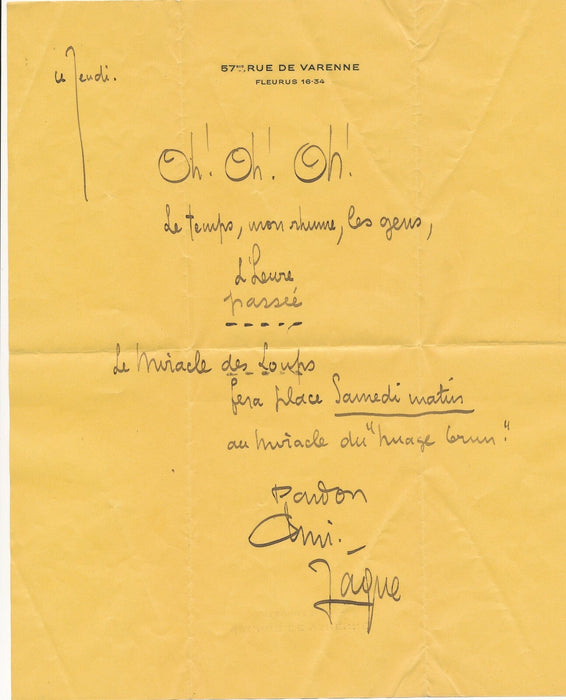 57BIS, RUE DE VARENNE
FLEURUS 16-34
ce Jeudi.
Oh! Oh! Oh!
Le temps, mon rhume, les gens,
L'heure
passée
Le Miracle des Loups
fera place Samedi matin
au miracle du "nuage brun"
Pardon
Ami.
Jàque